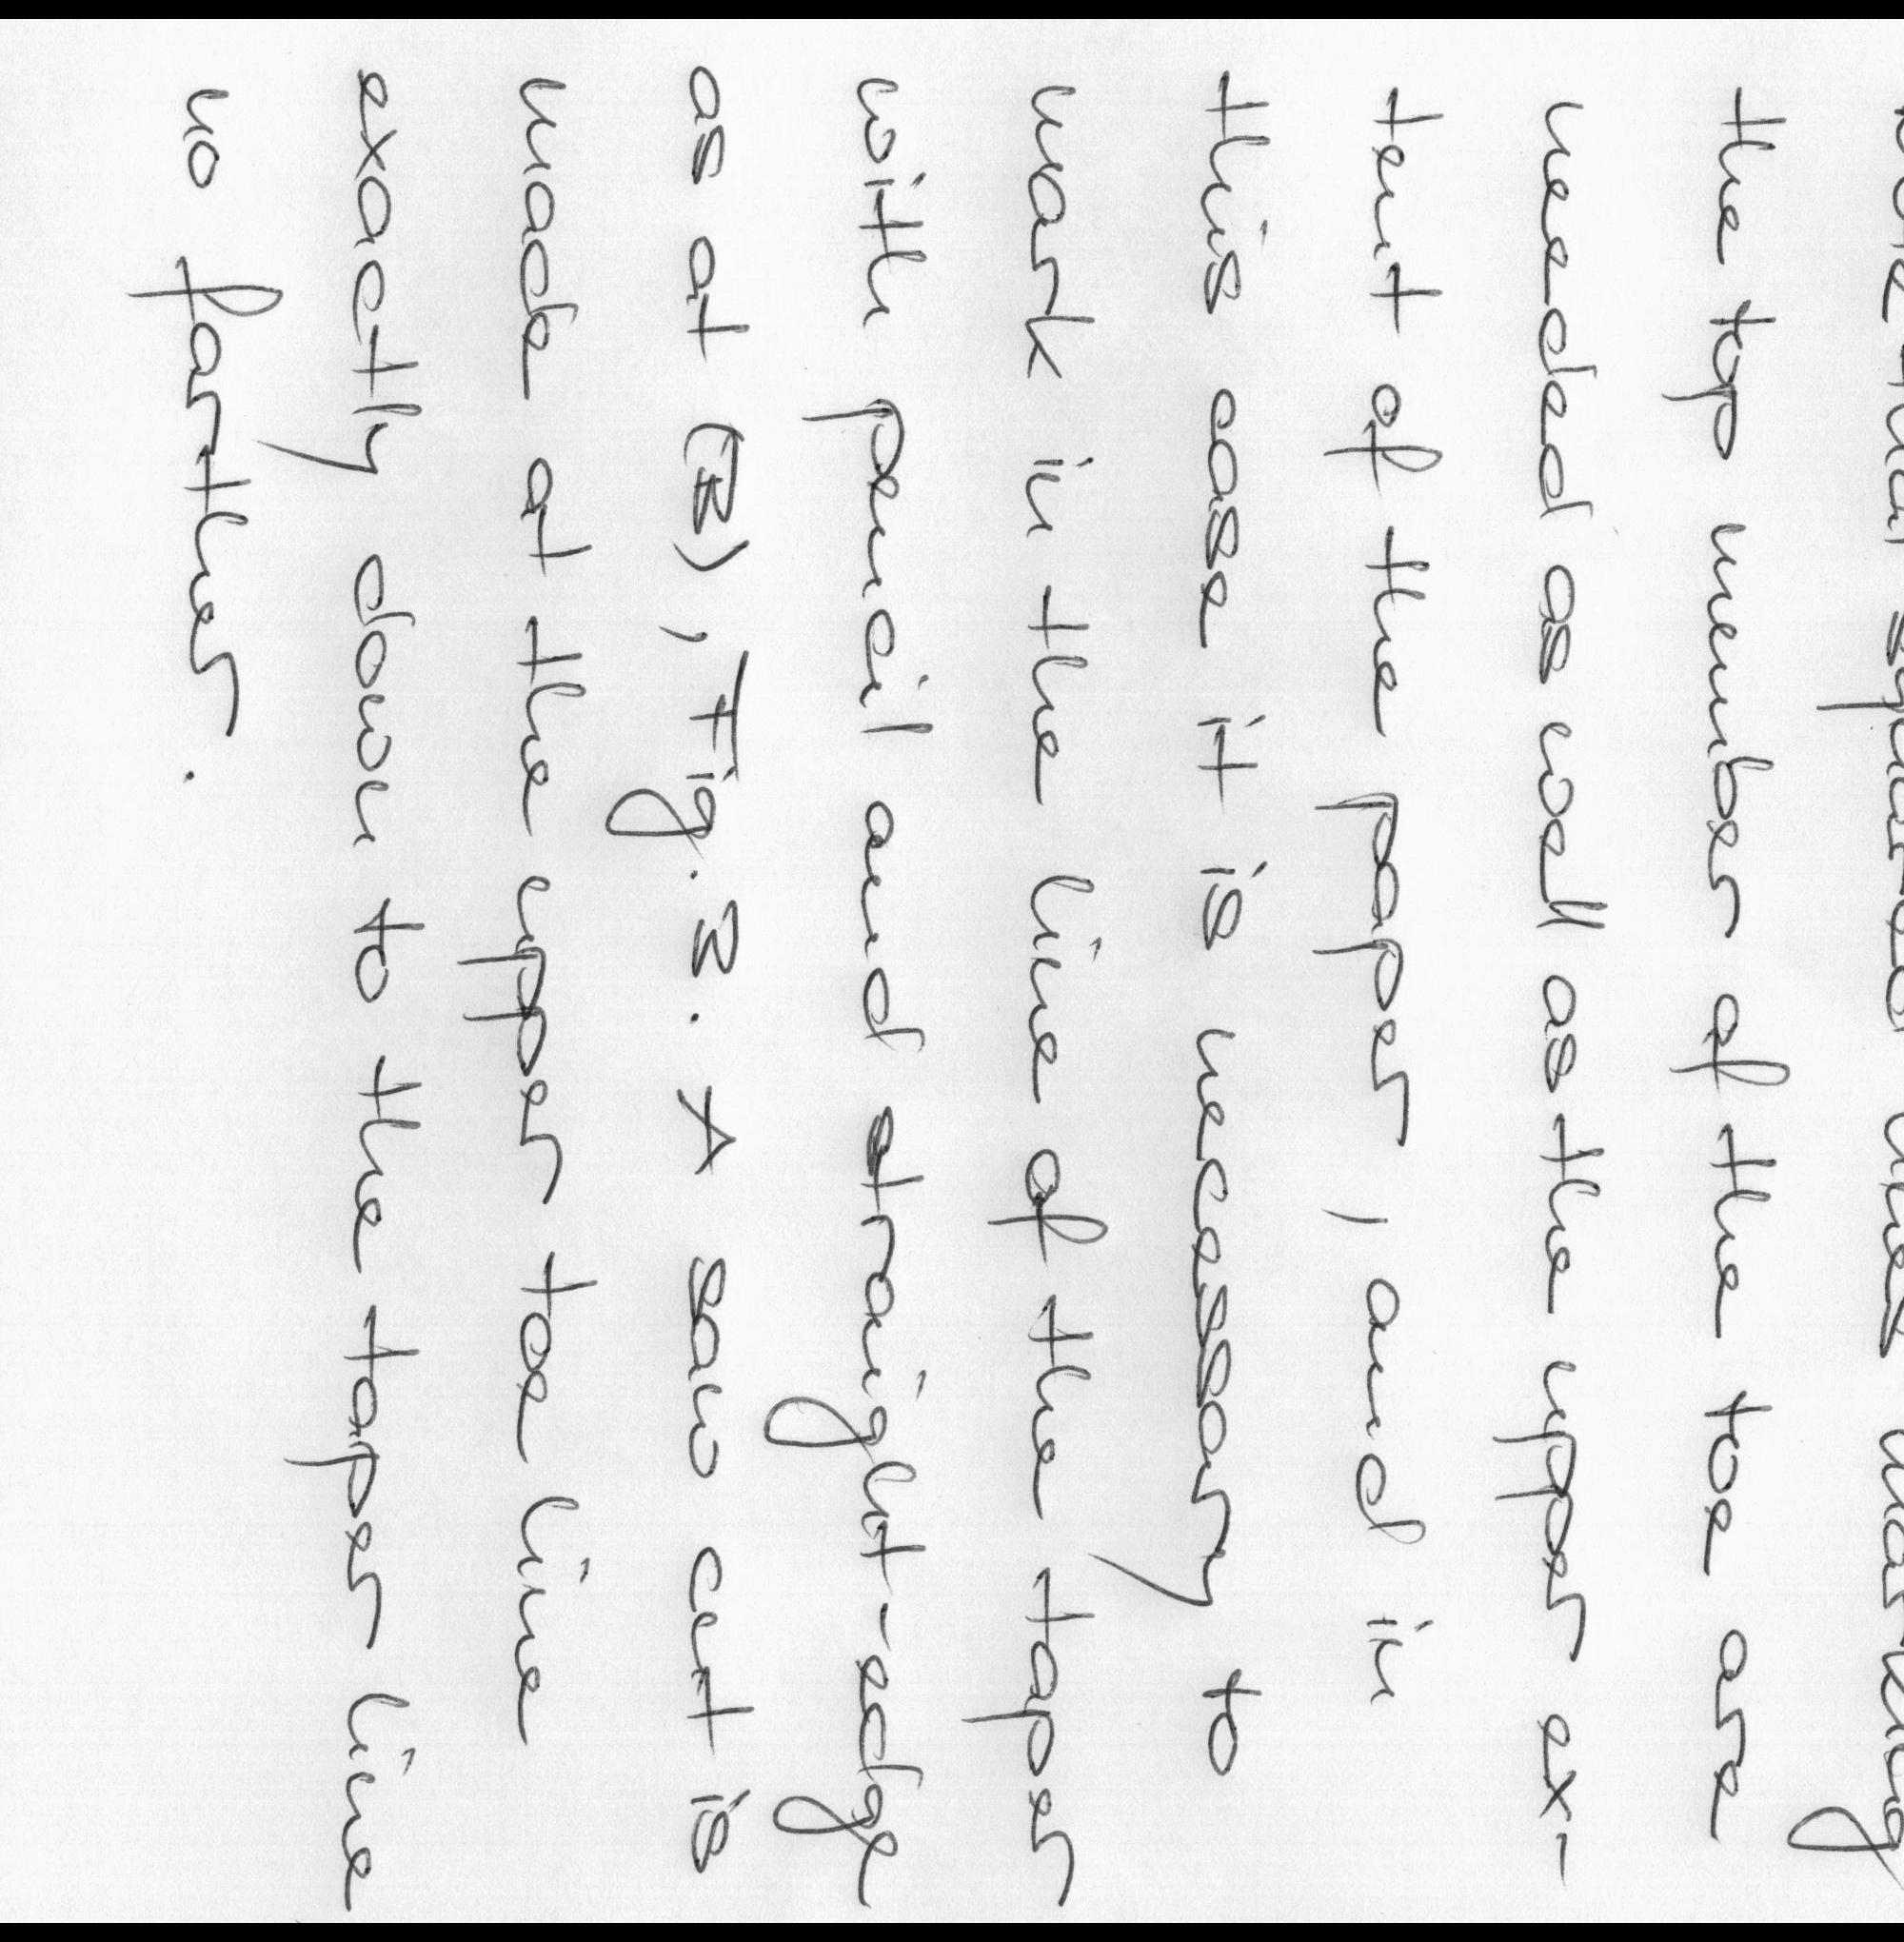 more than squared lines marking
the top member of the toe are
needed as well as the upper ex-
tent of the paper, and in
this case it is necessary to
mark in the line of the taper
with pencil and straight-edge
as at (B), Fig. 3. A saw cut is
made at the upper toe line
exactly down to the taper line
no farther.